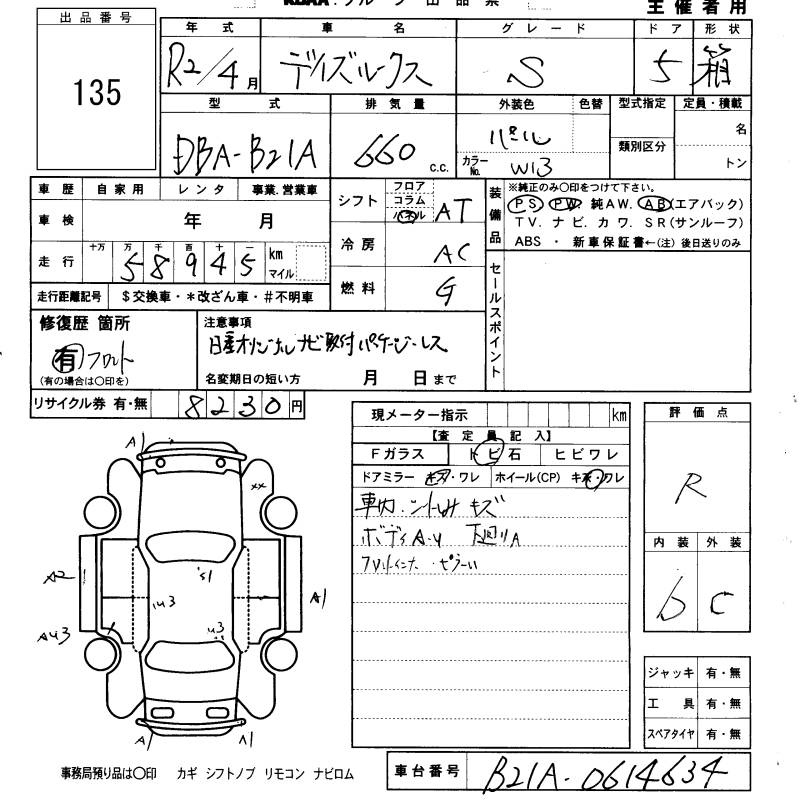 主催者用
出品番号
135
年式 車名 グレード ドア 形状
R2/4月 デイズルークス S 5 箱
型式 排気量 外装色 色替 型式指定 定員・積載
DBA-B21A 660 c.c. パール 類別区分 名
カラーNo. W13 トン
車歴 自家用 レンタ 事業.営業車
車検 年 月
走行 十万 万 千 百 十 一
58945 km マイル
走行距離記号 $交換車・*改ざん車・#不明車
シフト フロア コラム パネル AT
冷房 AC
燃料 G
装備品 ※純正のみ〇印をつけて下さい。
PS PW 純AW. AB(エアバック)
TV. ナビ. カワ. SR(サンルーフ)
ABS ・ 新車保証書←(注) 後日送りのみ
セールスポイント
修復歴 箇所
有 フロント
(有の場合は〇印を)
注意事項
日産オリジナルナビ取付パッケージ・レス
名変期日の短い方 月 日まで
リサイクル券 有・無 8230円
現メーター指示 km
【査定員記入】
Fガラス トビ石 ヒビワレ
ドアミラー キズ・ワレ ホイール(CP) キズ・ワレ
車内 キズ
ボディA.U 下廻りA
評価点
R
内装 外装
D C
ジャッキ 有・無
工具 有・無
スペアタイヤ 有・無
A1
××
A2
S1
U3
U3
A1
AU3
A1
A1
事務局預り品は〇印 カギ シフトノブ リモコン ナビロム
車台番号 B21A-0614634